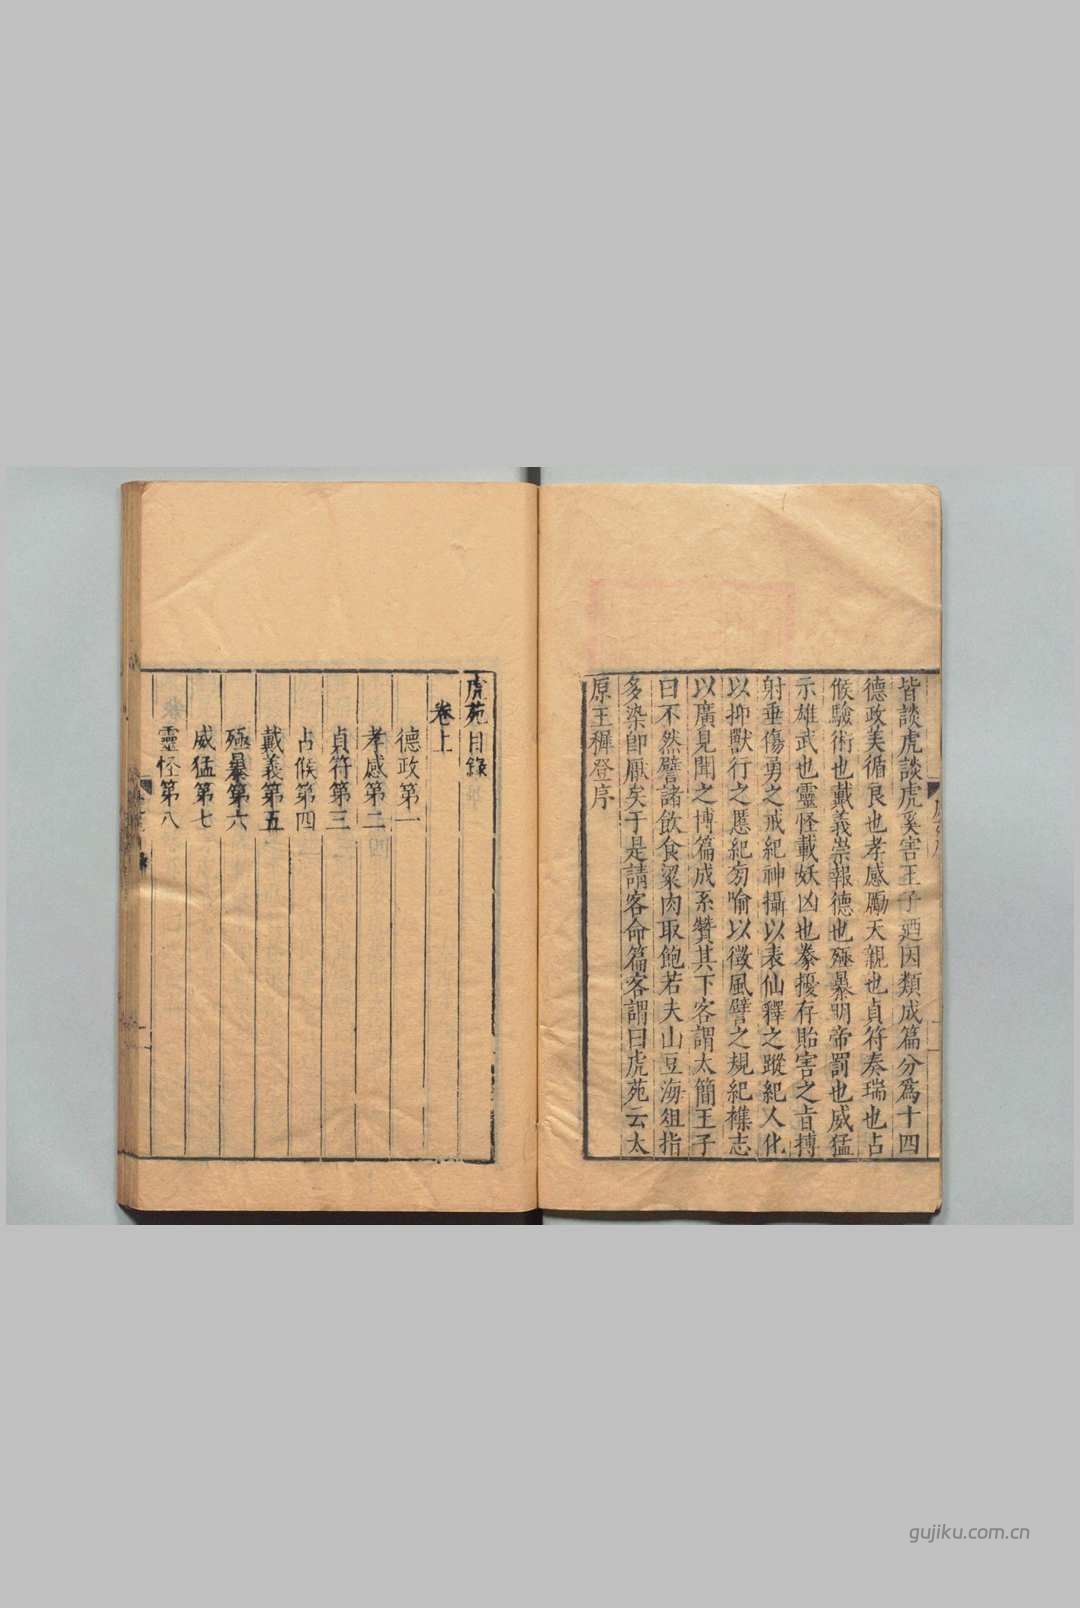 皆談虎談虎奚害王子廼因類成篇分爲十四
德政美循良也孝感勵天親也貞符奏瑞也占
候驗術也戴義崇報德也殛暴明帝罰也威猛
示雄武也靈怪載妖凶也豢擾存貽害之旨搏
射垂傷勇之戒紀神攝以表仙釋之蹤紀人化
以抑獸行之慝紀旁喻以徵風譬之規紀襍志
以廣見聞之博篇成系贊其下客謂太簡王子
曰不然譬諸飲食粱肉取飽若夫山豆海俎指
多染卽厭矣于是請客命篇客謂曰虎苑云太
原王穉登序
虎苑目錄
卷上
德政第一
孝感第二
貞符第三
占候第四
戴義第五
殛暴第六
威猛第七
靈怪第八
gujiku.com.cn